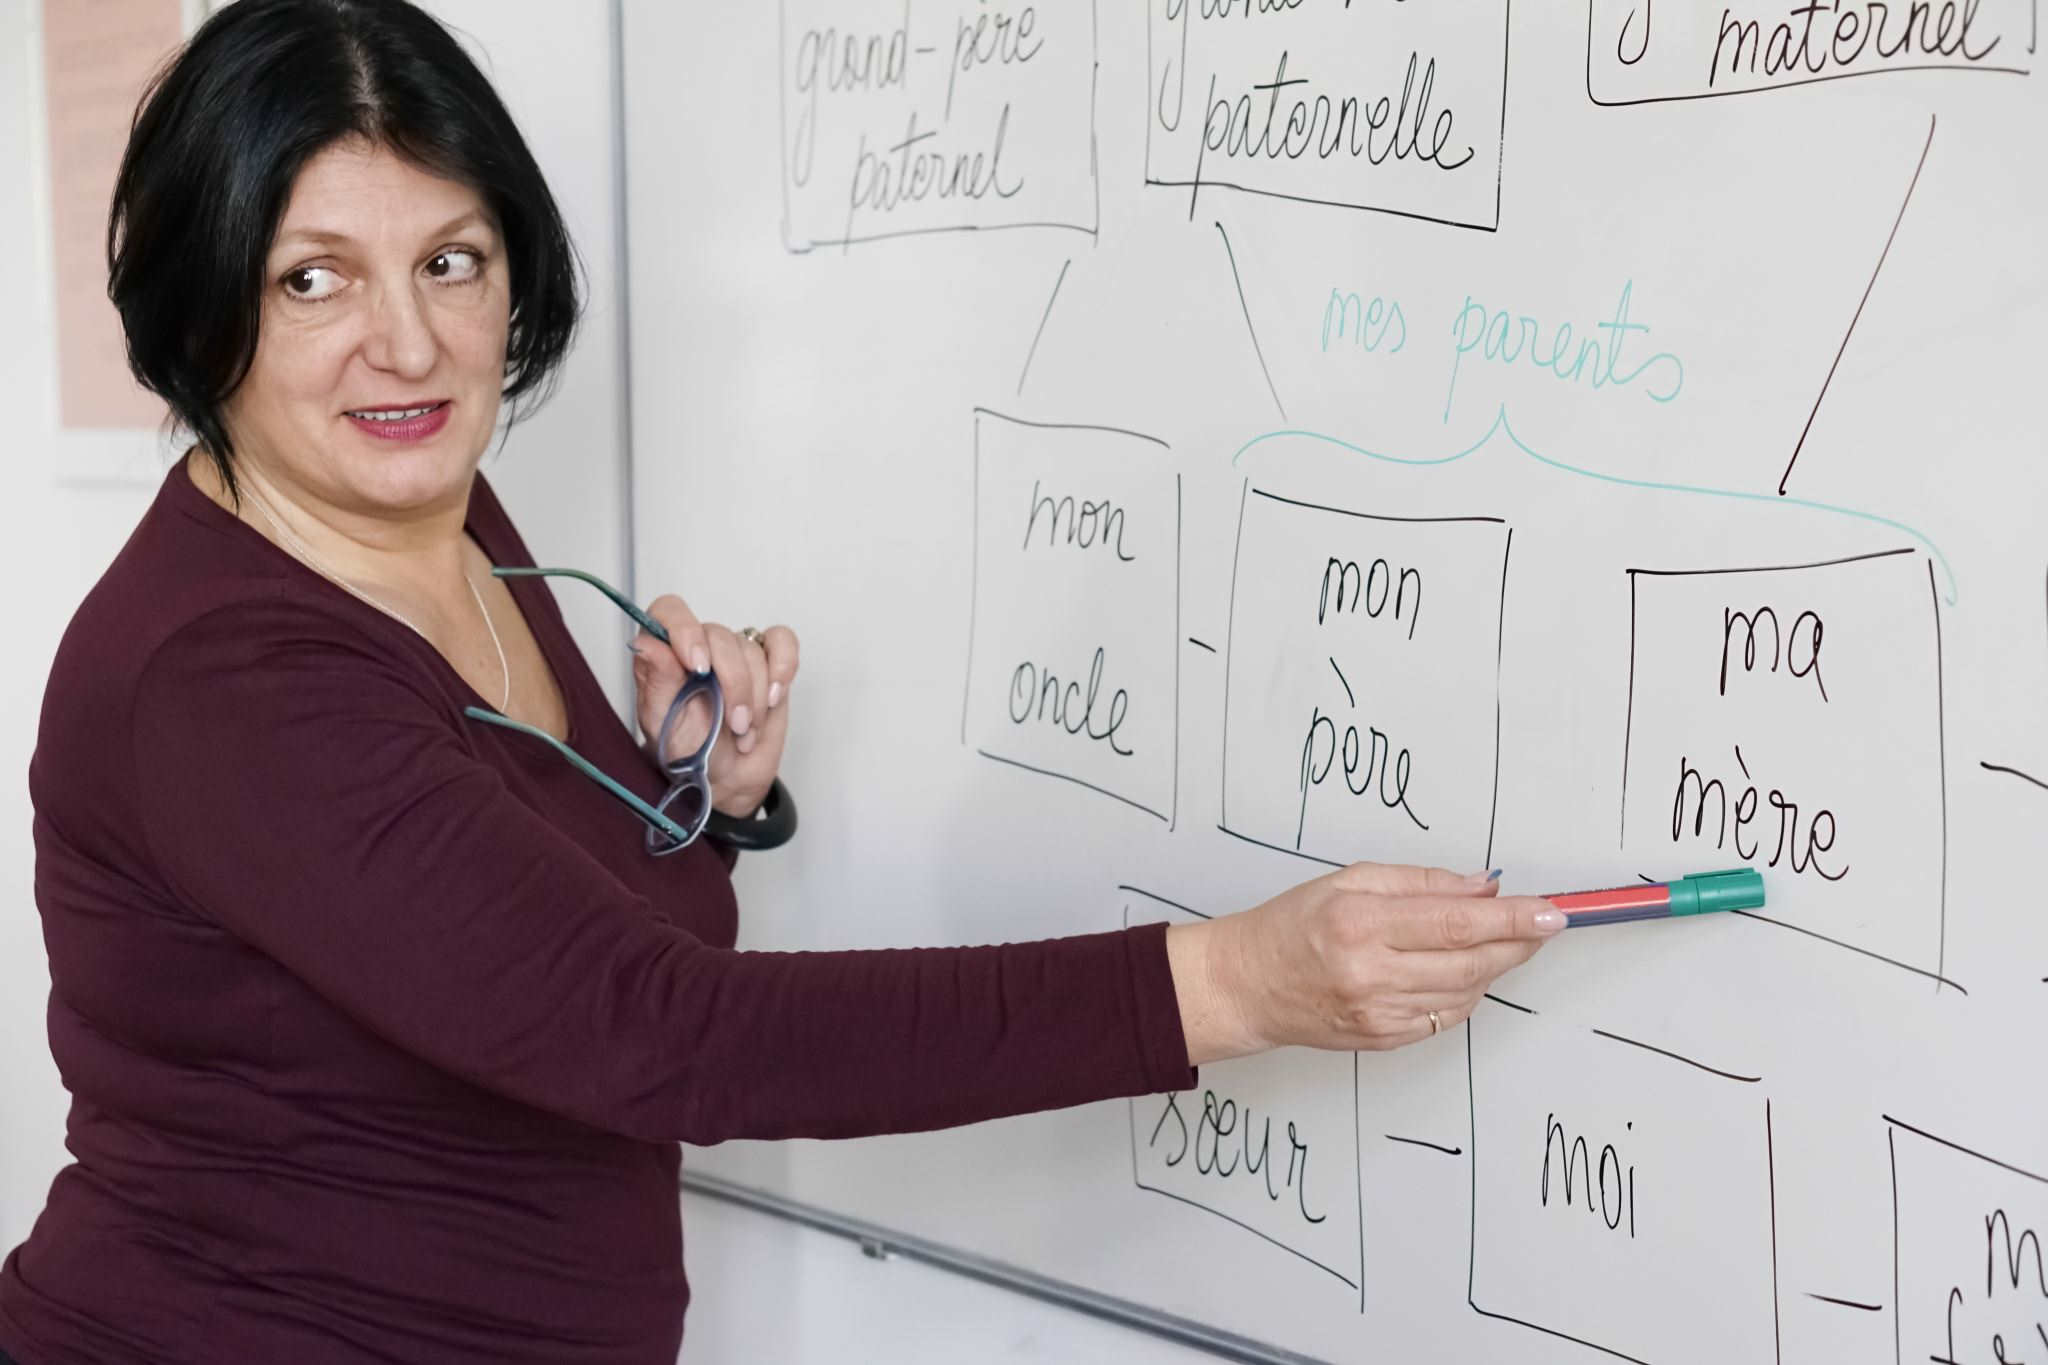 grand-père
paternel
paternelle
maternel
mes parents
mon
oncle
mon
père
ma
mère
sœur
moi